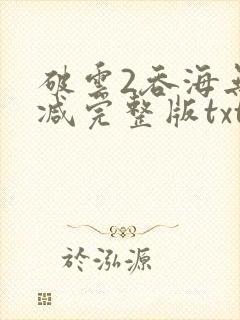 破云2吞海无
减完整版txt
於泓源